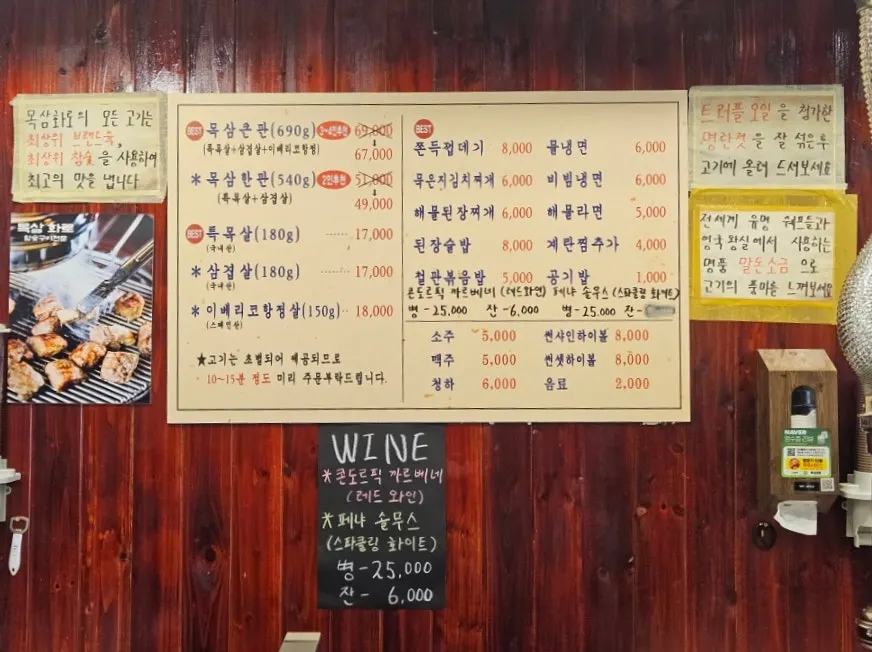 목삼화로의 모든 고기는
최상위 브랜드육,
최상위 참숯을 사용하여
최고의 맛을 냅니다
목삼 화로
참숯구이전문
BEST 목삼큰판(690g) 3~4인추천 69,000
(특목살+삼겹살+이베리코항정) 67,000
* 목삼한판(540g) 2인추천 51,000
(특목살+삼겹살) 49,000
BEST 특목살(180g) ······ 17,000
(국내산)
* 삼겹살(180g) ······ 17,000
(국내산)
* 이베리코항정살(150g) ·· 18,000
(스페인산)
★고기는 초벌되어 제공되므로
10~15분 정도 미리 주문부탁드립니다.
BEST
쫀득껍데기 8,000 물냉면 6,000
묵은지김치찌개 6,000 비빔냉면 6,000
해물된장찌개 6,000 해물라면 5,000
된장술밥 8,000 계란찜추가 4,000
철판볶음밥 5,000 공기밥 1,000
콘도르픽 까르베네 (레드와인) 페냐 솔무스 (스파클링 화이트)
병 - 25,000 잔 - 6,000 병 - 25,000 잔 -
소주 5,000 썬샤인하이볼 8,000
맥주 5,000 썬셋하이볼 8,000
청하 6,000 음료 2,000
트러플 오일을 첨가한
명란젓을 잘 섞은후
고기에 올려 드셔보세요
전세계 유명 쉐프들과
영국 왕실에서 사용하는
명품 말돈소금으로
고기의 풍미를 느껴보세요
WINE
* 콘도르픽 까르베네
(레드 와인)
* 페냐 솔무스
(스파클링 화이트)
병 - 25,000
잔 - 6,000
NAVER